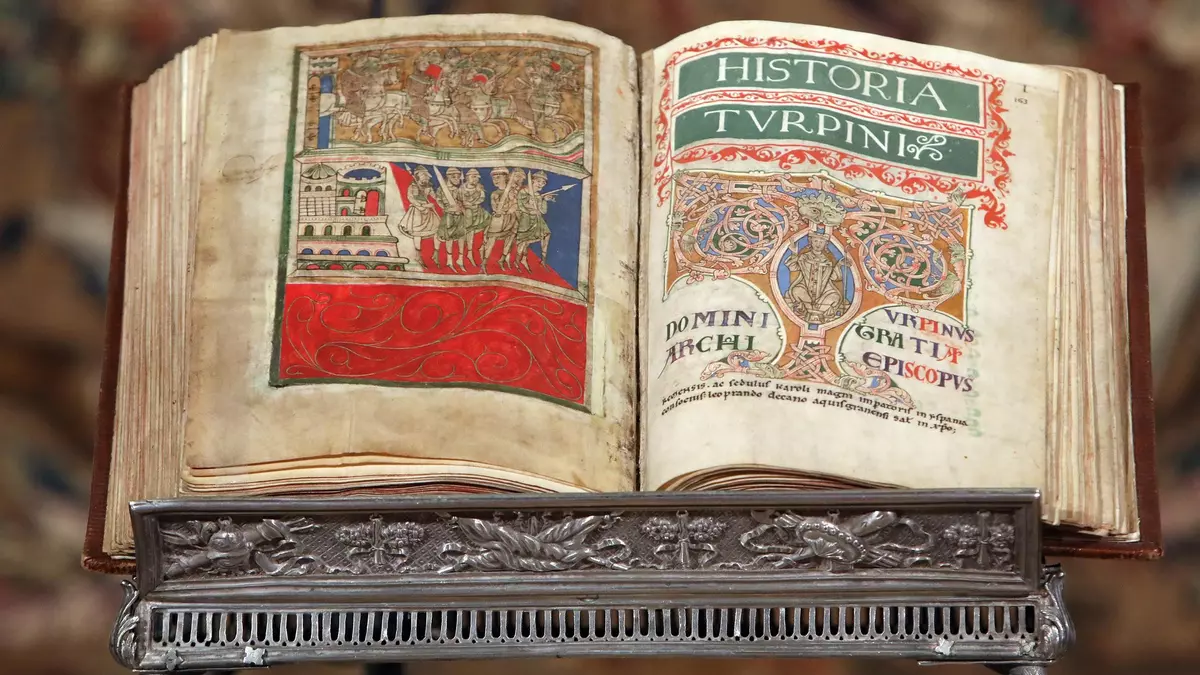 HISTORIA
TVRPINI
I
163
DOMINI VRPINVS
ARCHI GRATIA
EPISCOPVS
REMENSIS. ac sedulus karoli magni imperatoris in yspania
consocius. leoprando decano aquisgranensi salt in xpo;